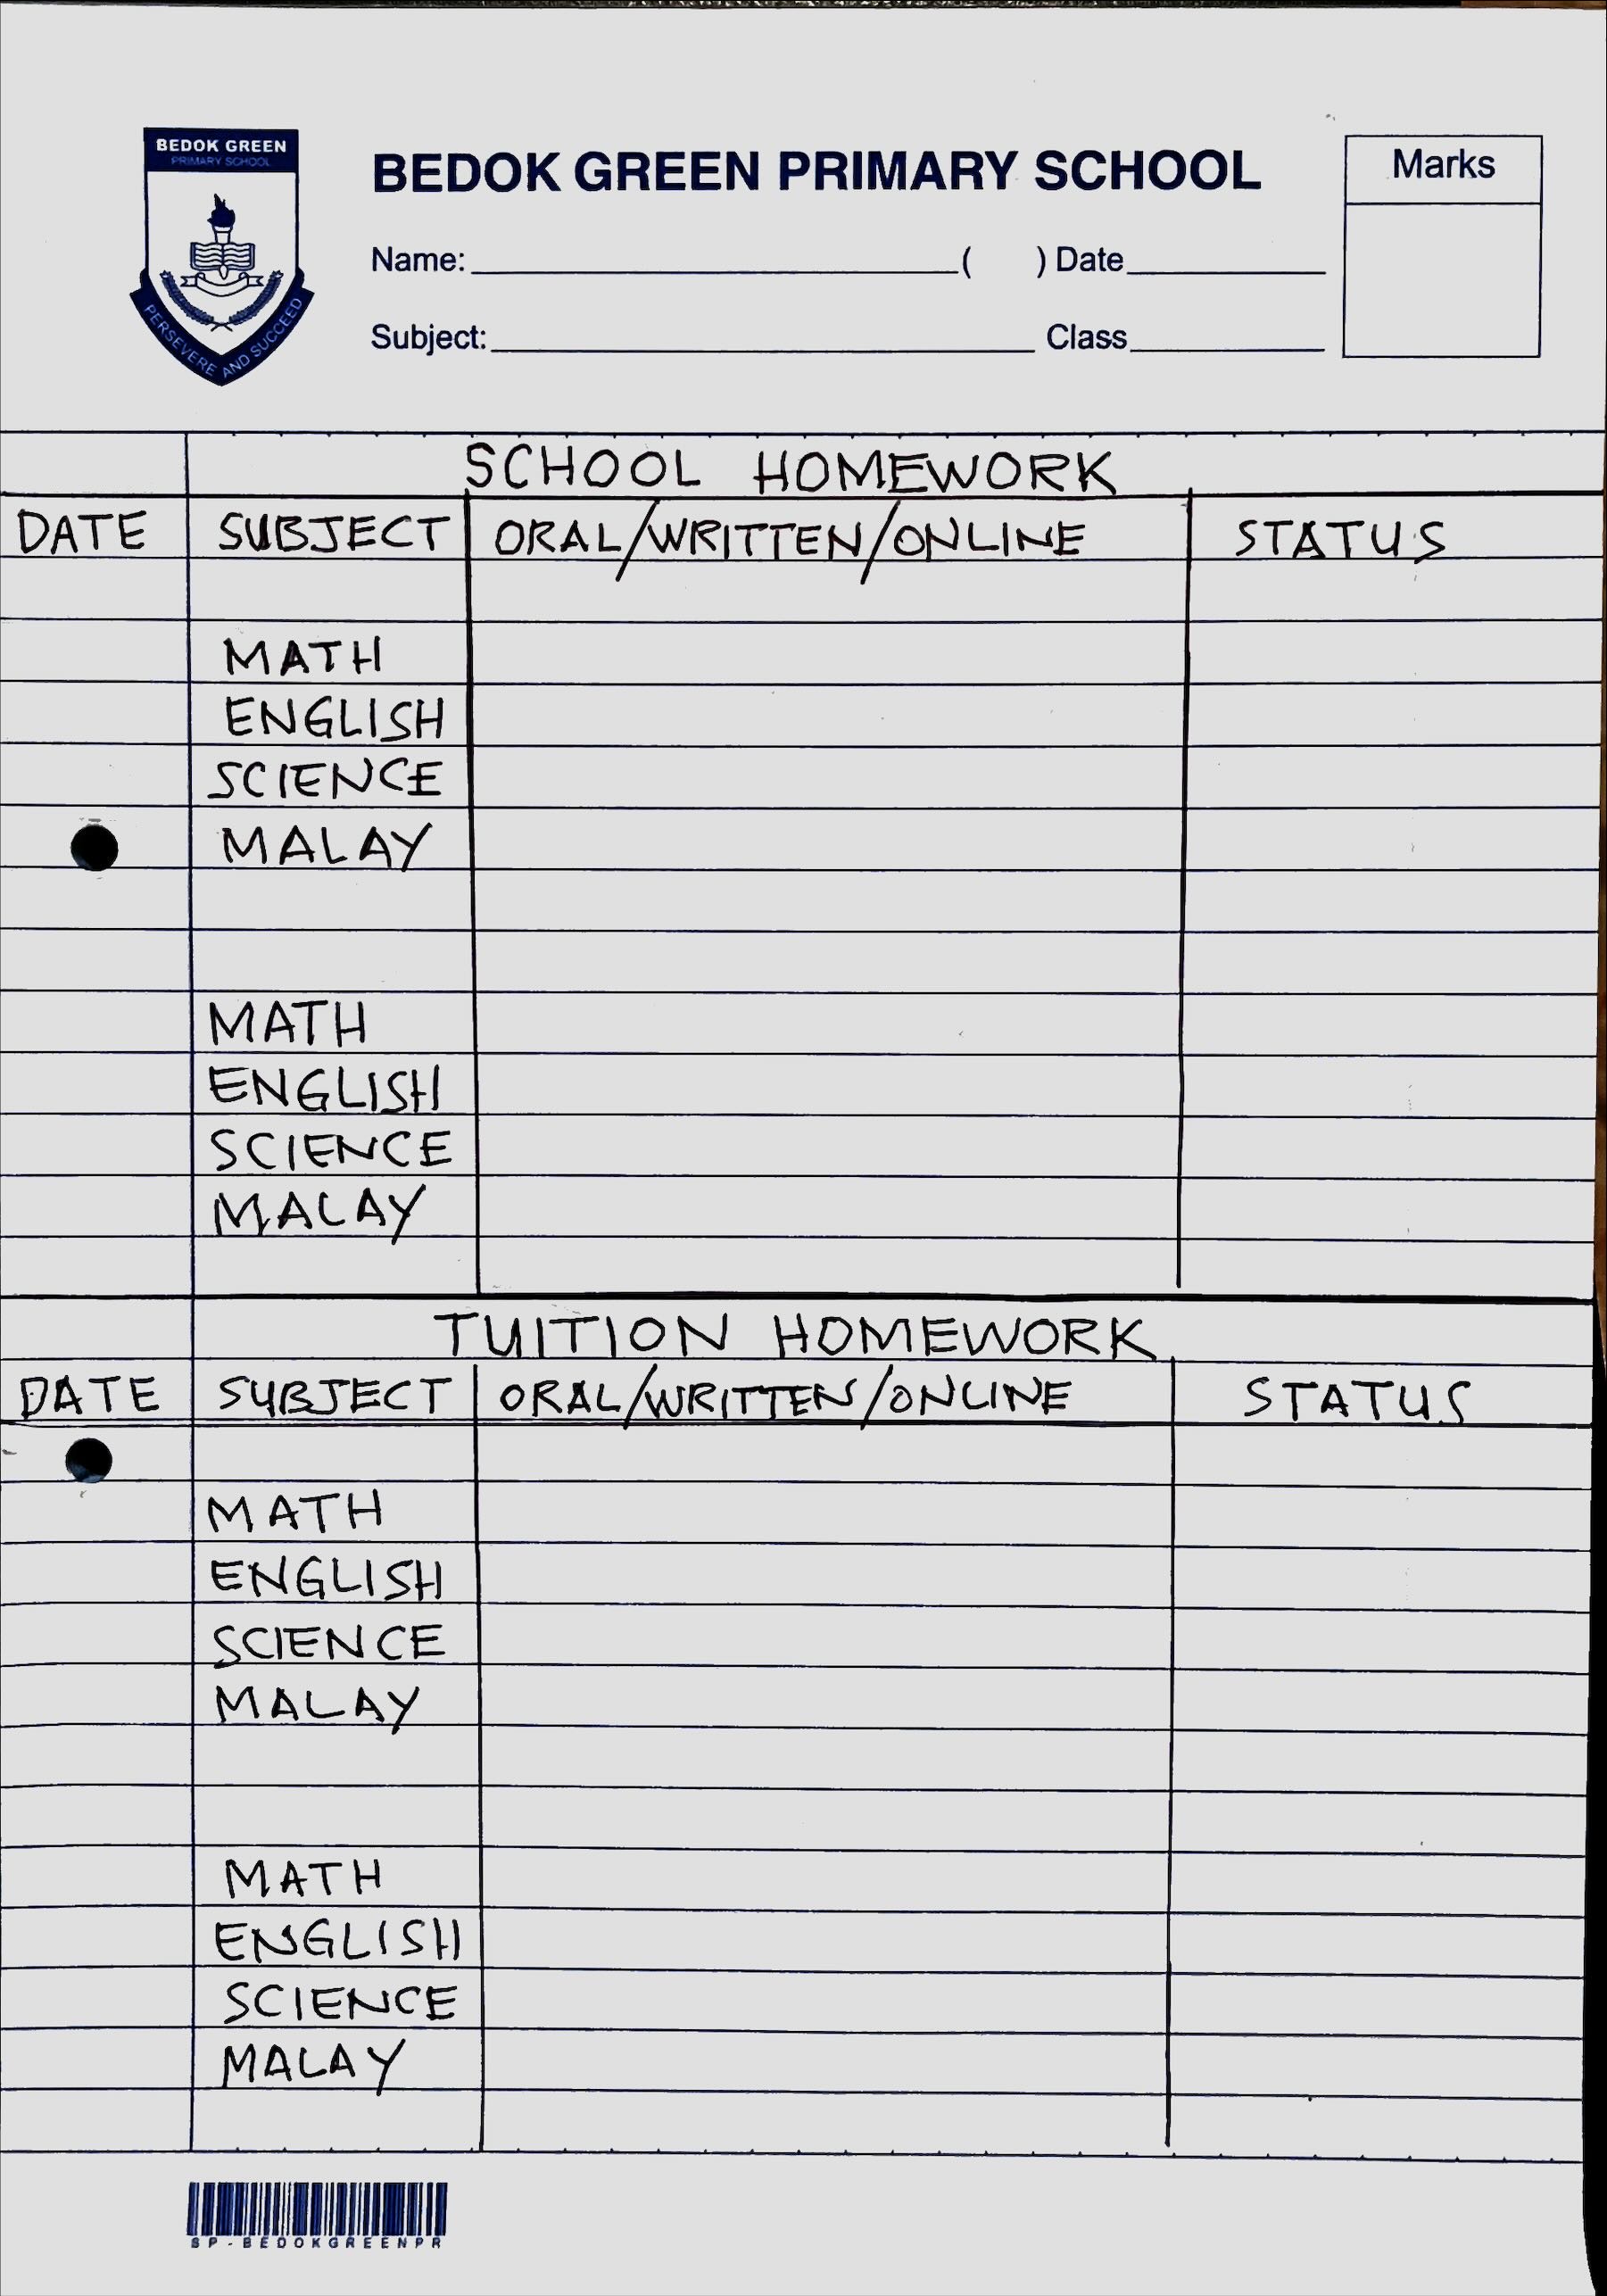 BEDOK GREEN
PRIMARY SCHOOL
PERSEVERE AND SUCCEED
BEDOK GREEN PRIMARY SCHOOL
Marks
Name: ( ) Date
Subject: Class
SCHOOL HOMEWORK
DATE SUBJECT ORAL/WRITTEN/ONLINE STATUS
MATH
ENGLISH
SCIENCE
MALAY
MATH
ENGLISH
SCIENCE
MALAY
TUITION HOMEWORK
DATE SUBJECT ORAL/WRITTEN/ONLINE STATUS
MATH
ENGLISH
SCIENCE
MALAY
MATH
ENGLISH
SCIENCE
MALAY
SP-BEDOKGREENPR